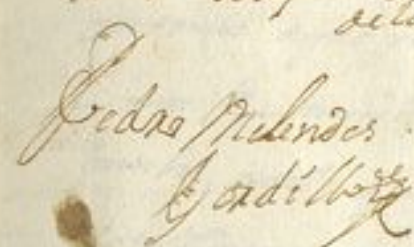 Pedro Melendes
Gordillo